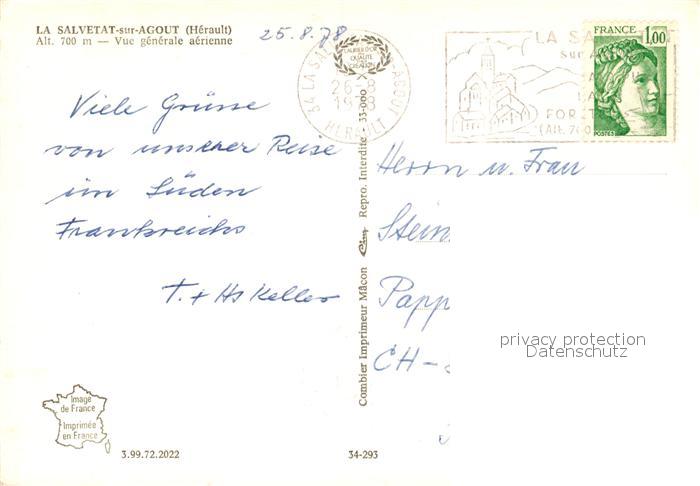 LA SALVETAT-sur-AGOUT (Hérault)
Alt. 700 m — Vue générale aérienne
25.8.78
CALIBER D'OR
QUALITÉ
CRÉATION
34 LA SA
AGOUT
26-8
1978
HERAULT
LA SA
sur
FOR
(Alt. 700
FRANCE 1,00
POSTES
Viele Grüsse
von unserer Reise
im Süden
Frankreichs
T. + Hs Keller
Herrn u. Frau
Stein
Papp
CH-
privacy protection
Datenschutz
Combier Imprimeur Mâcon Cim Repro. Interdite - 35-000
Image
de France
Imprimée
en France
3.99.72.2022
34-293